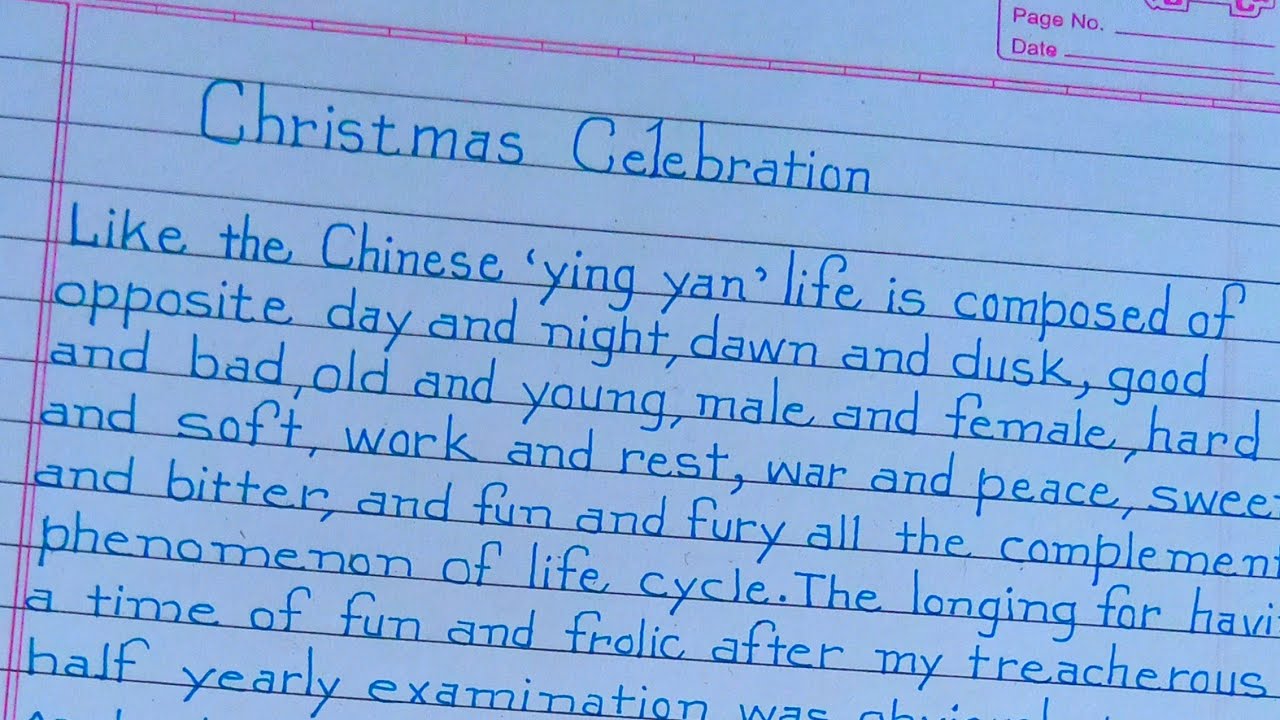 Page No.
Date
Christmas Celebration
Like the Chinese ‘ying yan’ life is composed of
opposite day and night, dawn and dusk, good
and bad, old and young, male and female, hard
and soft, work and rest, war and peace, swee
and bitter, and fun and fury all the complement
phenomenon of life cycle. The longing for havi
a time of fun and frolic after my treacherous
half yearly examination was